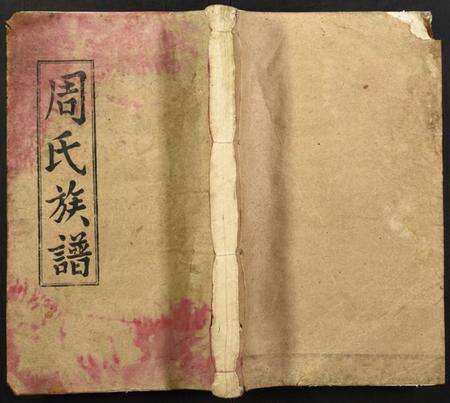 周氏族譜